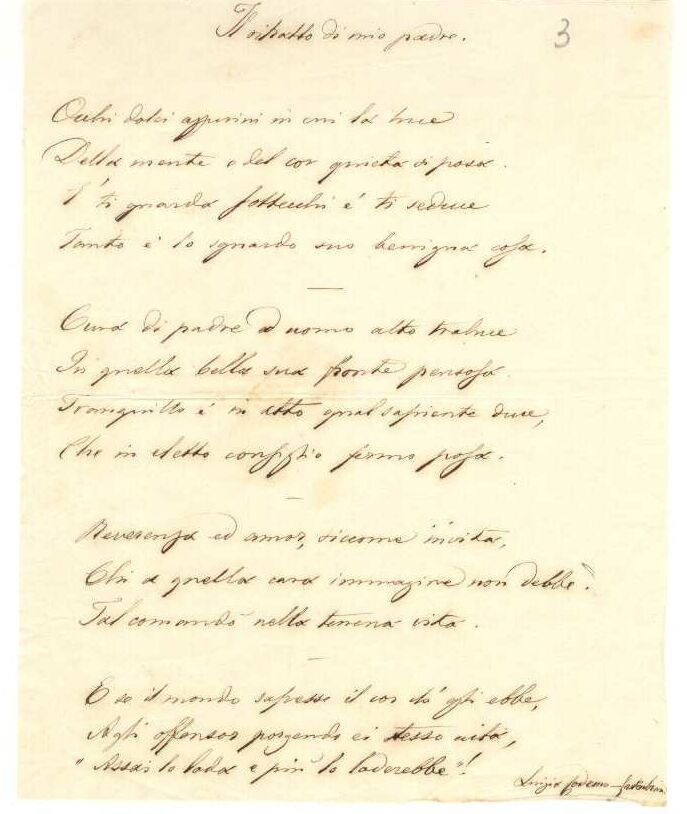 Il ritratto di mio padre.
3
Occhi dolci azzurini in cui la luce
Della mente e del cor quieta si posa.
E' ti guarda sott'occhi e ti seduce
Tanto è lo sguardo suo benigna cosa.
Cura di padre e d'uomo alto traluce
In quella bella sua fronte pensosa.
Tranquillo è in atto qual sapiente duce,
Che in eletto consiglio fermo posa.
Reverenza ed amor, siccome invita,
Chi a quella cara immagine non debbe?
Tal comandò nella terrena vita.
E se il mondo sapesse il cor ch' egli ebbe,
Agli offensor porgendo ei stesso aita,
"Assai lo loda e più lo loderebbe"!
Luigia Codemo